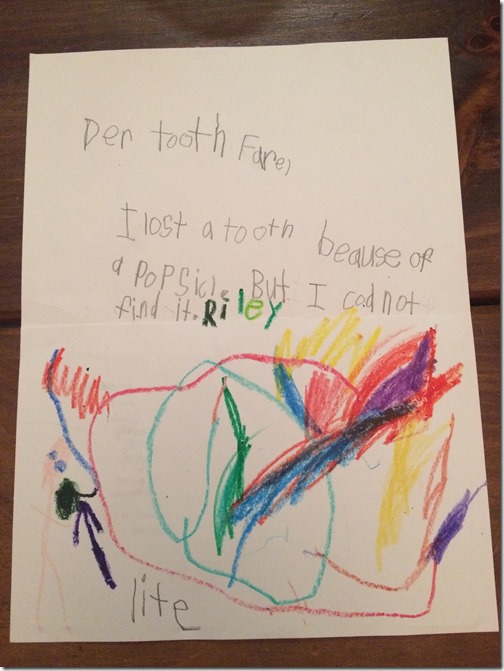 Der tooth Fare,
I lost a tooth beause of
a popsicl. But I cad not
find it. Riley
lite